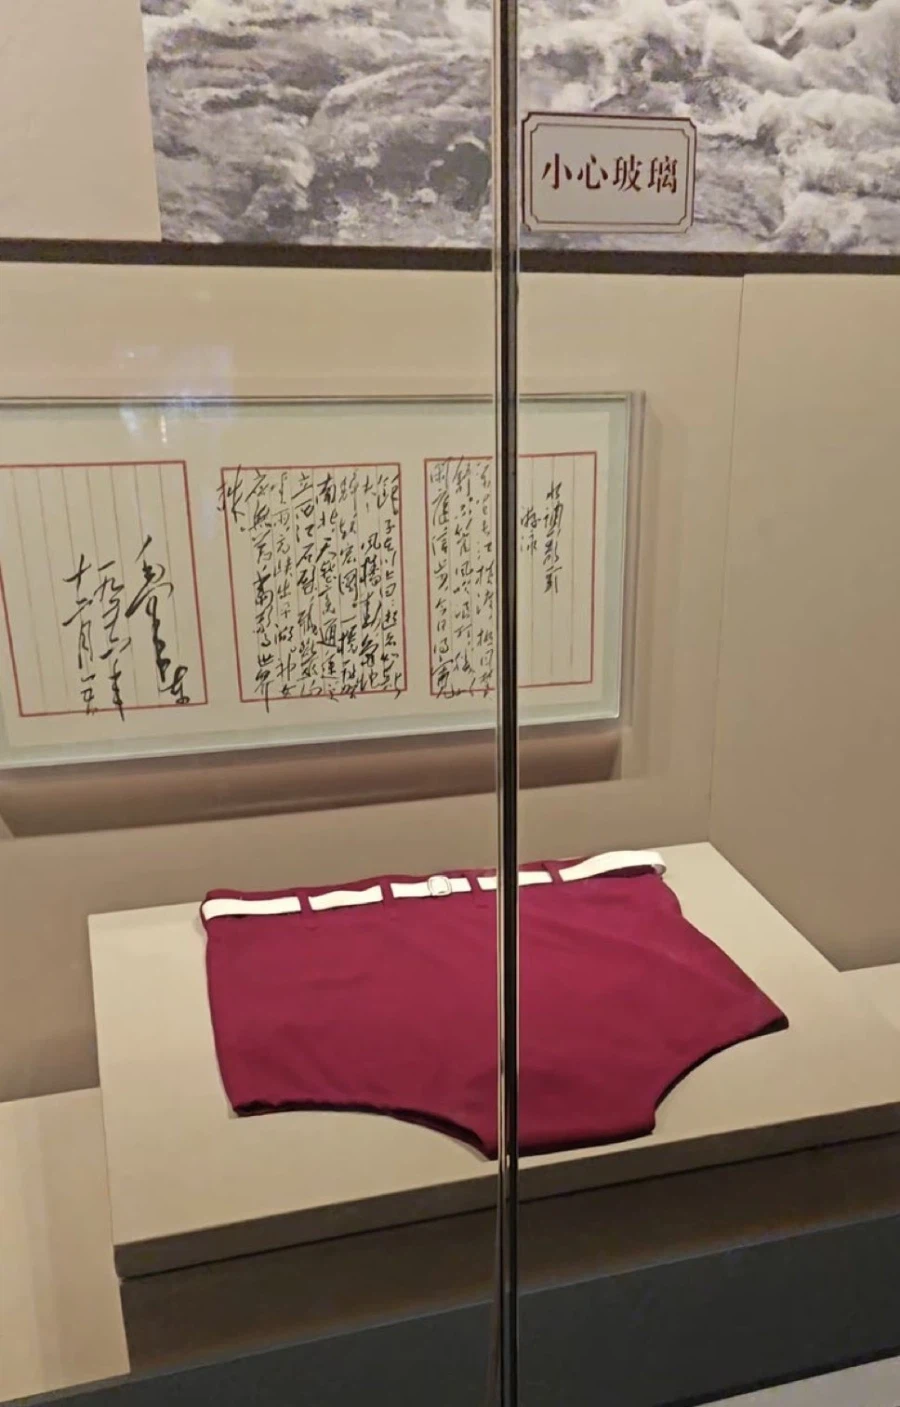 小心玻璃
水调歌头
游泳
万里长江横渡，极目楚天
舒。不管风吹浪打，胜似
闲庭信步，今日得宽
馀。子在川上曰：逝者如斯
夫！风樯动，龟蛇
静，起宏图。一桥飞架
南北，天堑变通途。更
立西江石壁，截断巫山
云雨，高峡出平湖。神女
应无恙，当惊世界
殊。
毛泽东
一九五六年
十二月五日